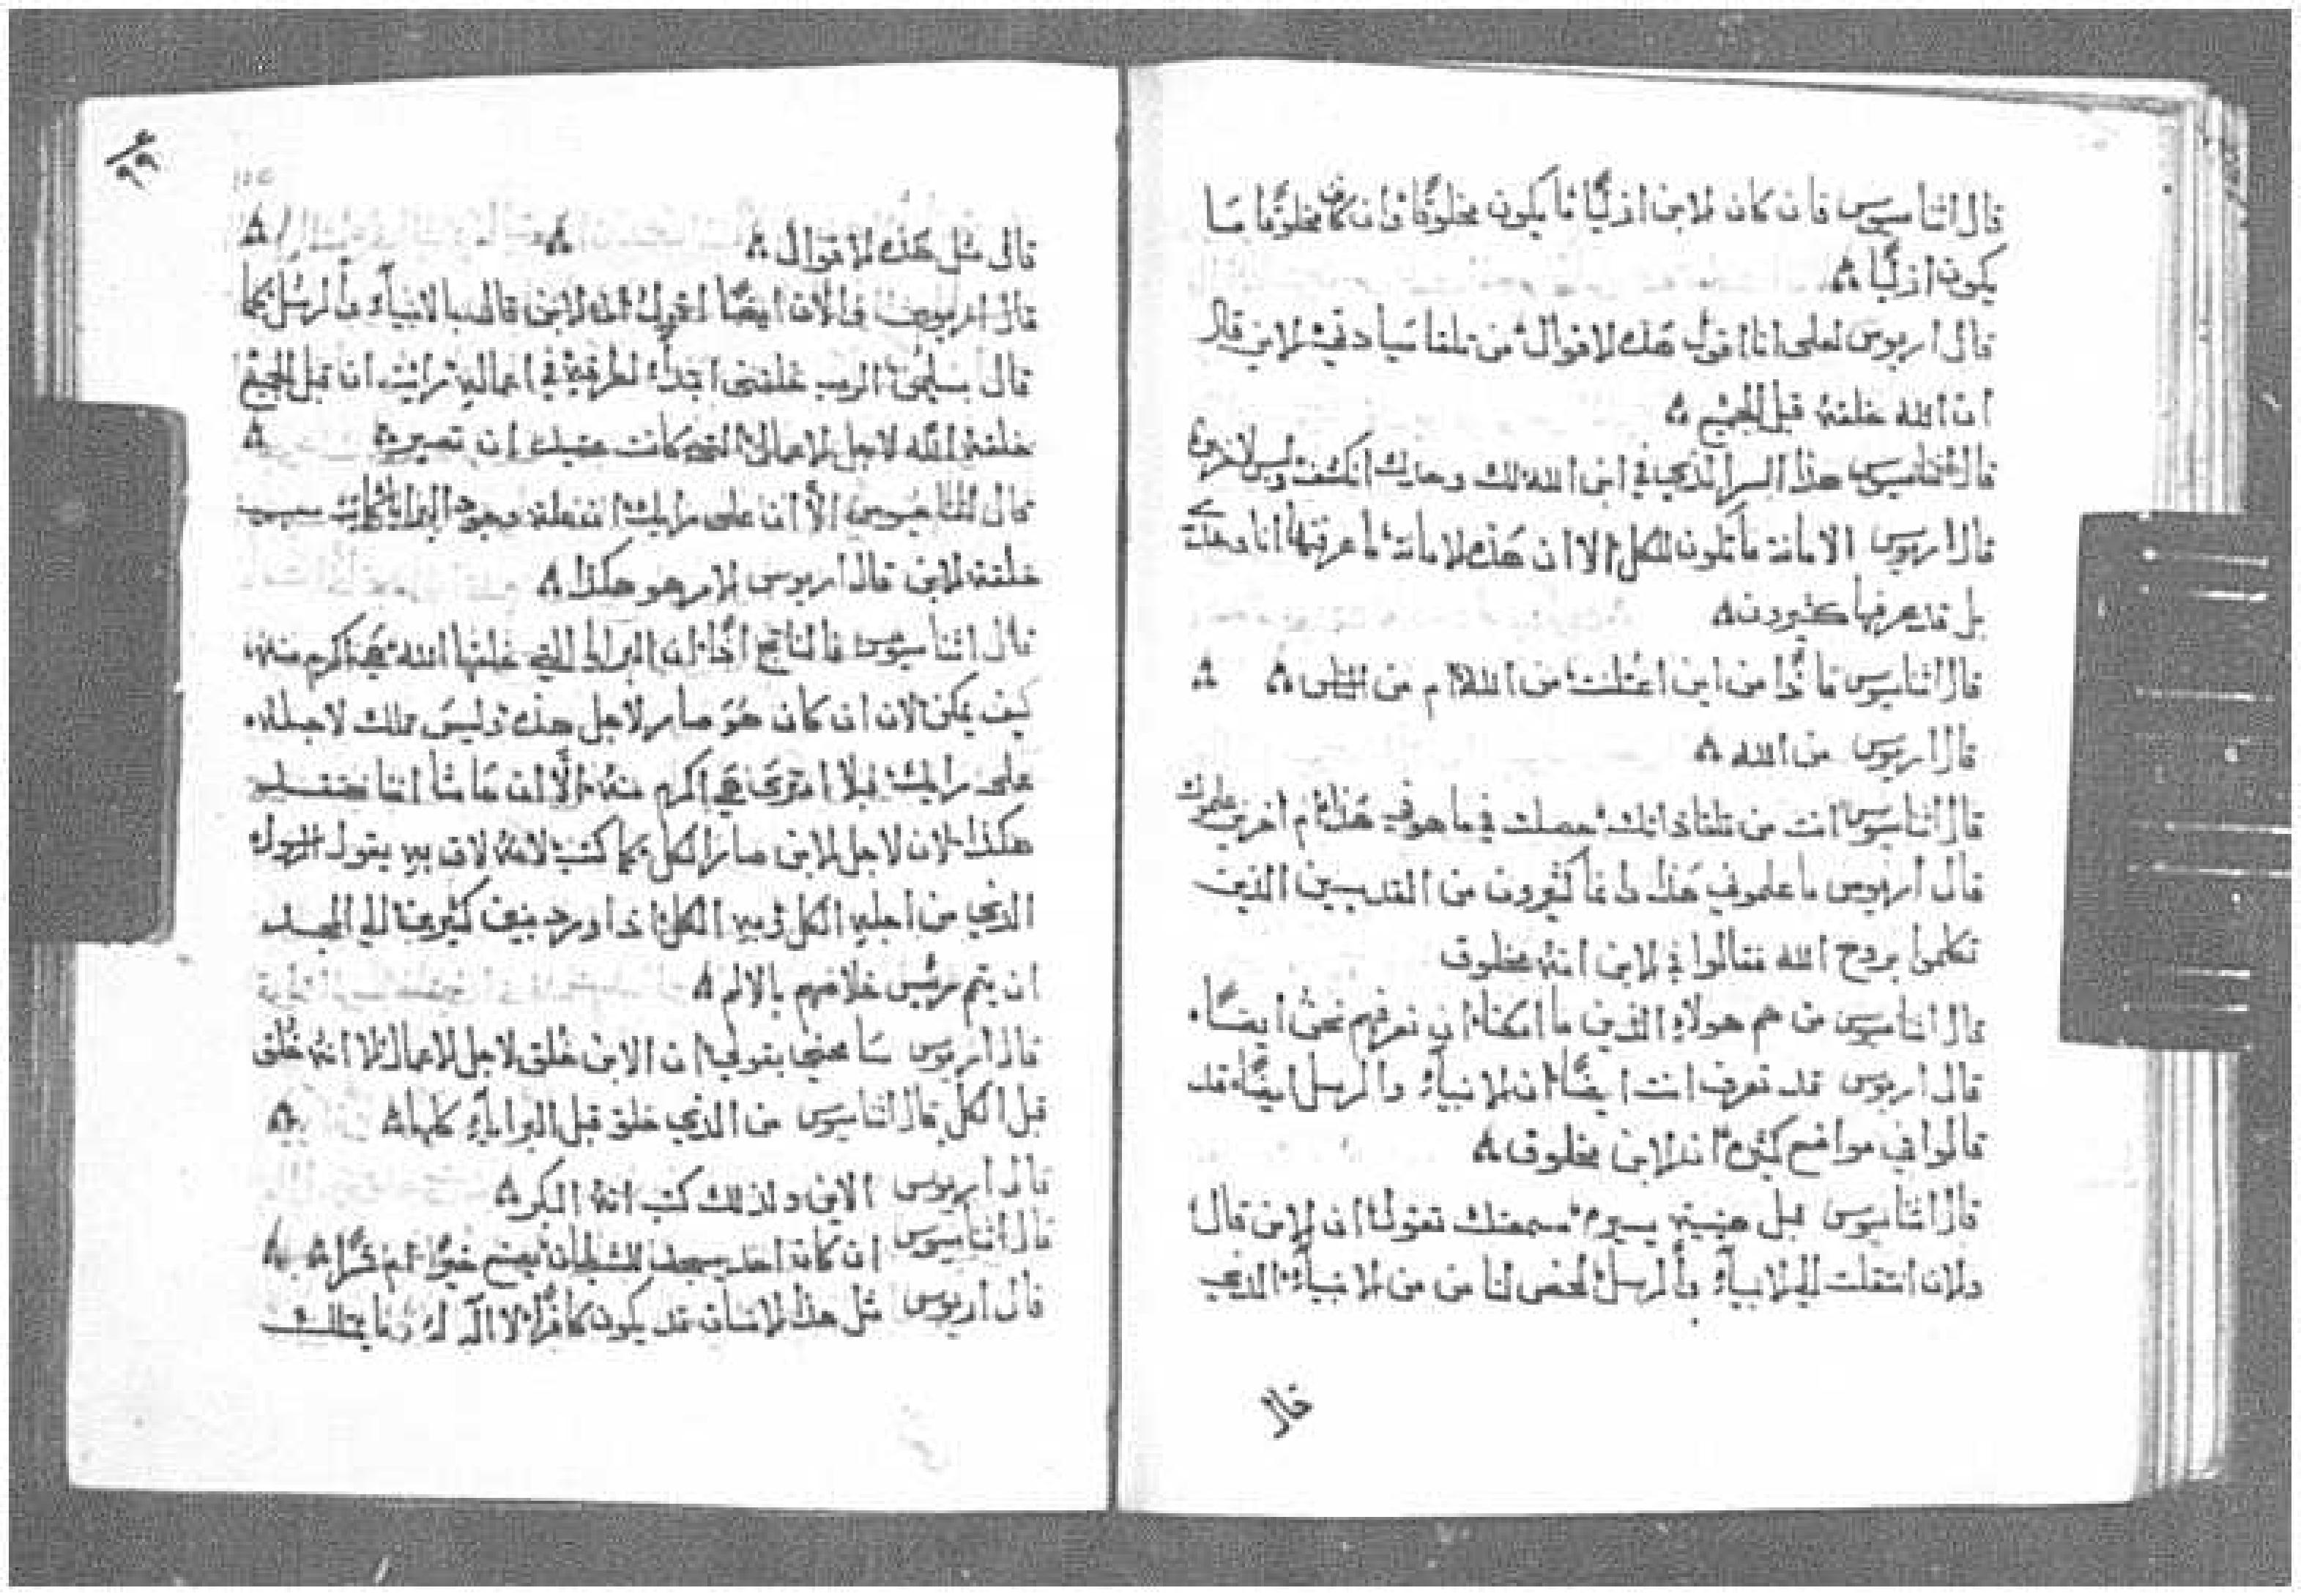 قال اثناسيوس فان كان الابن ازليًا فما يكون مخلوقًا وان كان مخلوقًا فما
يكون ازليًا
قال اريوس لعلى انا اقول هذه الاقوال من تلقا سياد فيه الابن قال
ان الله خلقه قبل الجميع
قال اثناسيوس هذا السر الذي في ابن الله لك وحدك انكشف وليس لاخرين
قال اريوس الامانة ما تكون للكل الا ان هذه الامانة ما عرفتها انا وحدي
بل قد عرفها كثيرون
قال اثناسيوس فاذًا من اين اعتلنت من الله ام من الناس
قال اريوس من الله
قال اثناسيوس انت من تلقا ذاتك حصلت في ما هو في هذا ام اخرين علموك
قال اريوس ما علموني هذا وانما كثيرون من القديسين الذين
تكلموا بروح الله فقالوا في الابن انه مخلوق
قال اثناسيوس من هم هولاء الذين ما امكنا ان نعرفهم نحن ايضًا
قال اريوس قد تعرف انت ايضًا ان الانبياء والرسل ايضًا قد
قالوا في مواضع كثيرة ان الابن مخلوق
قال اثناسيوس قبل هنيهة يسيرة سمعتك تقول ان الابن قال
والان انتقلت الى الانبياء والرسل لخص لنا من من الانبياء الذي
قال
٩٩
قال مثل هذه الاقوال
قال اريوس فالان ايضًا اقول ان الابن قال بالانبياء والرسل كما
قال بسليمن الرب خلقني ابتداء لطرقه في اعماله رايت ان قبل الجميع
خلقه الله لاجل الاعمال التي كانت عتيدة ان تصير
قال اثناسيوس الا ان على رايك ان علة وجود البرايا كانت سبب
خلقة الابن قال اريوس الامر هو هكذا
قال اثناسيوس فالناتج اذًا ان البرايا التي خلقها الله هي اكرم منه
كيف يمكن الان ان كان هو صار لاجل هذه وليس تلك لاجله
على رايك فبلا امترى هي اكرم منه الا ان حاشا اننا نعتقد
هكذا لان لاجل الابن صار الكل كما كتب لانه لاق به يقول الرسول
الذي من اجله الكل وبه الكل اذ اورد بنين كثيرين الى المجد
ان يتم رئيس خلاصهم بالالم
قال اريوس سامحني بقولي ان الابن خلق لاجل الاعمال الا انه خلق
قبل الكل قال اثناسيوس من الذي خلق قبل البرايا كلها
قال اريوس الابن ولذلك كتب انه البكر
قال اثناسيوس ان كان احد يسجد للشيطان ايصنع خيرًا ام شرًا
قال اريوس مثل هذا الانسان قد يكون كافرًا لا اله له